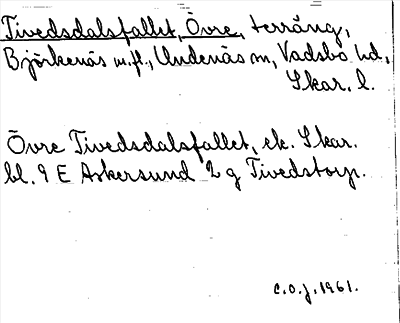 Tivedsdalsfallet, Övre, terräng,
Björkenäs m.fl., Undenäs sn, Vadsbo hd,
Skar. l.
Övre Tivedsdalsfallet, ek. Skar.
bl. 9 E Askersund 2 g Tivedstorp.
C.O.J. 1961.